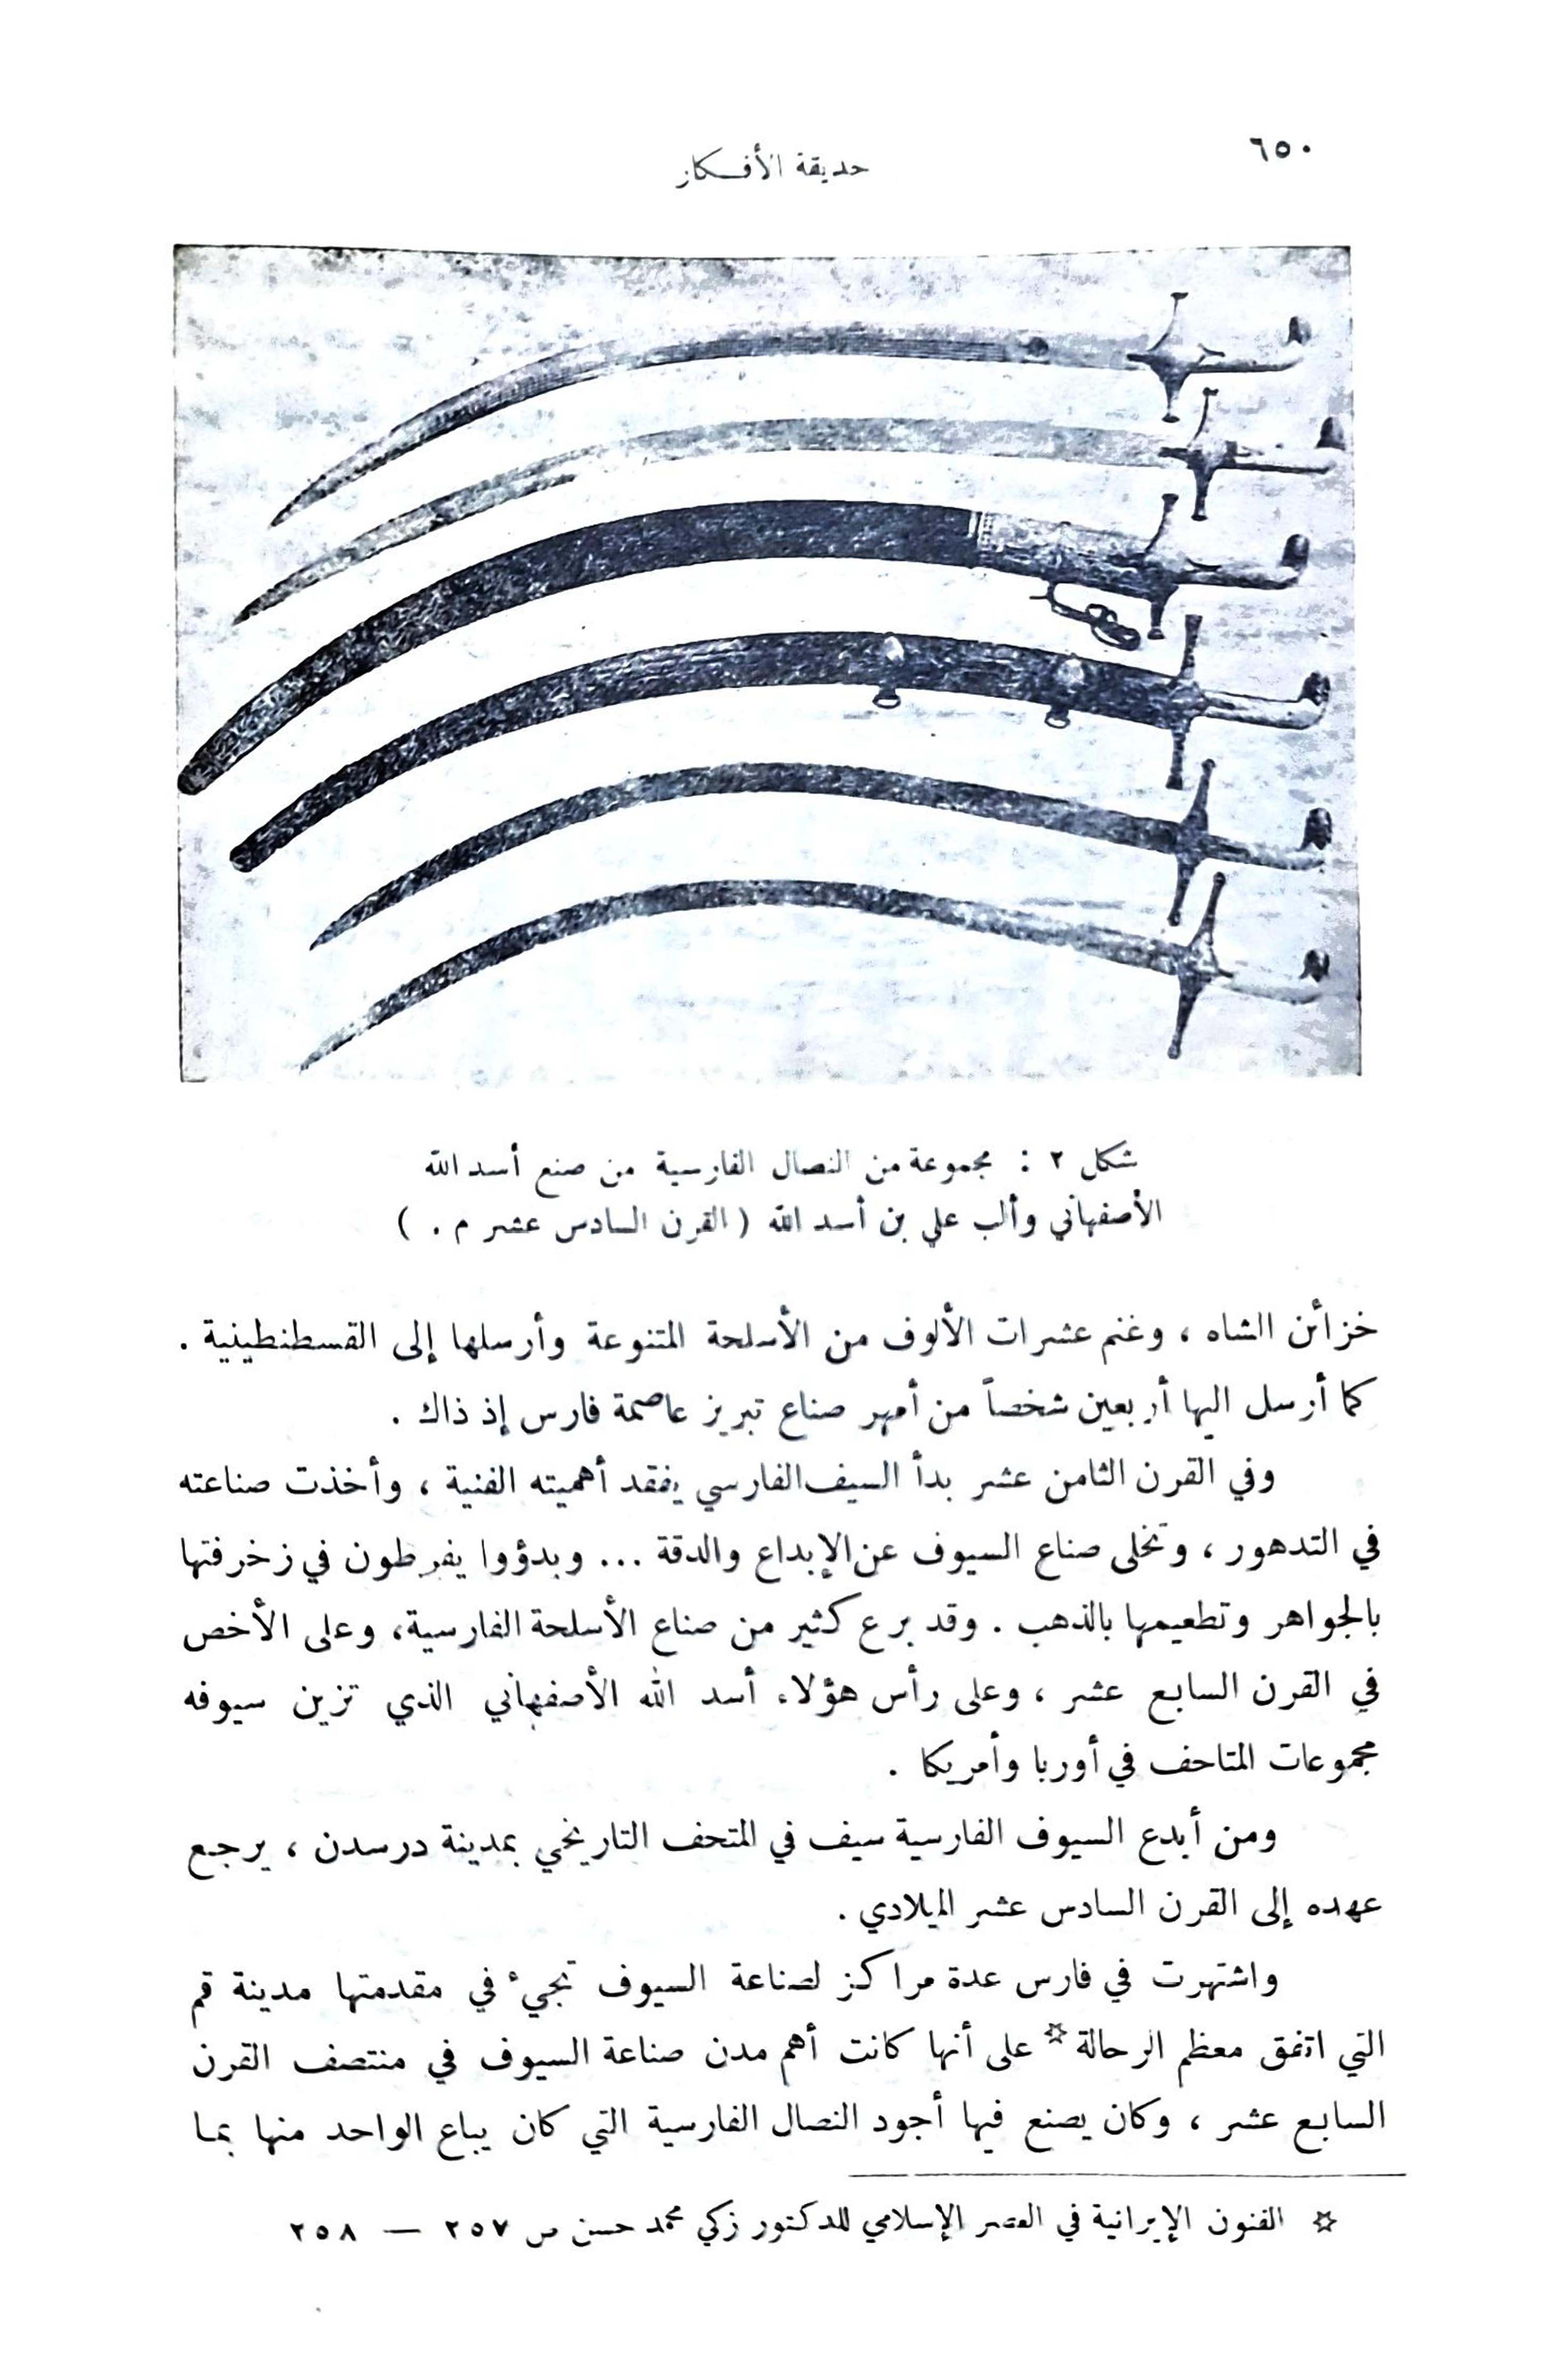 ٦٥٠
حديقة الأفكار
شكل ٢ : مجموعة من النصال الفارسية من صنع أسد الله
الأصفهاني وألب علي بن أسد الله ( القرن السادس عشر م . )
خزائن الشاه ، وغنم عشرات الألوف من الأسلحة المتنوعة وأرسلها إلى القسطنطينية .
كما أرسل اليها أربعين شخصاً من أمهر صناع تبريز عاصمة فارس إذ ذاك .
وفي القرن الثامن عشر بدأ السيف الفارسي يفقد أهميته الفنية ، وأخذت صناعته
في التدهور ، وتخلى صناع السيوف عن الإبداع والدقة ... وبدؤوا يفرطون في زخرفتها
بالجواهر وتطعيمها بالذهب . وقد برع كثير من صناع الأسلحة الفارسية، وعلى الأخص
في القرن السابع عشر ، وعلى رأس هؤلاء أسد الله الأصفهاني الذي تزين سيوفه
مجموعات المتاحف في أوربا وأمريكا .
ومن أبدع السيوف الفارسية سيف في المتحف التاريخي بمدينة درسدن ، يرجع
عهده إلى القرن السادس عشر الميلادي .
واشتهرت في فارس عدة مراكز لصناعة السيوف تجيء في مقدمتها مدينة قم
التي اتفق معظم الرحالة ☆ على أنها كانت أهم مدن صناعة السيوف في منتصف القرن
السابع عشر ، وكان يصنع فيها أجود النصال الفارسية التي كان يباع الواحد منها بما
☆ الفنون الإيرانية في العصر الإسلامي للدكتور زكي محمد حسن ص ٢٥٧ — ٢٥٨